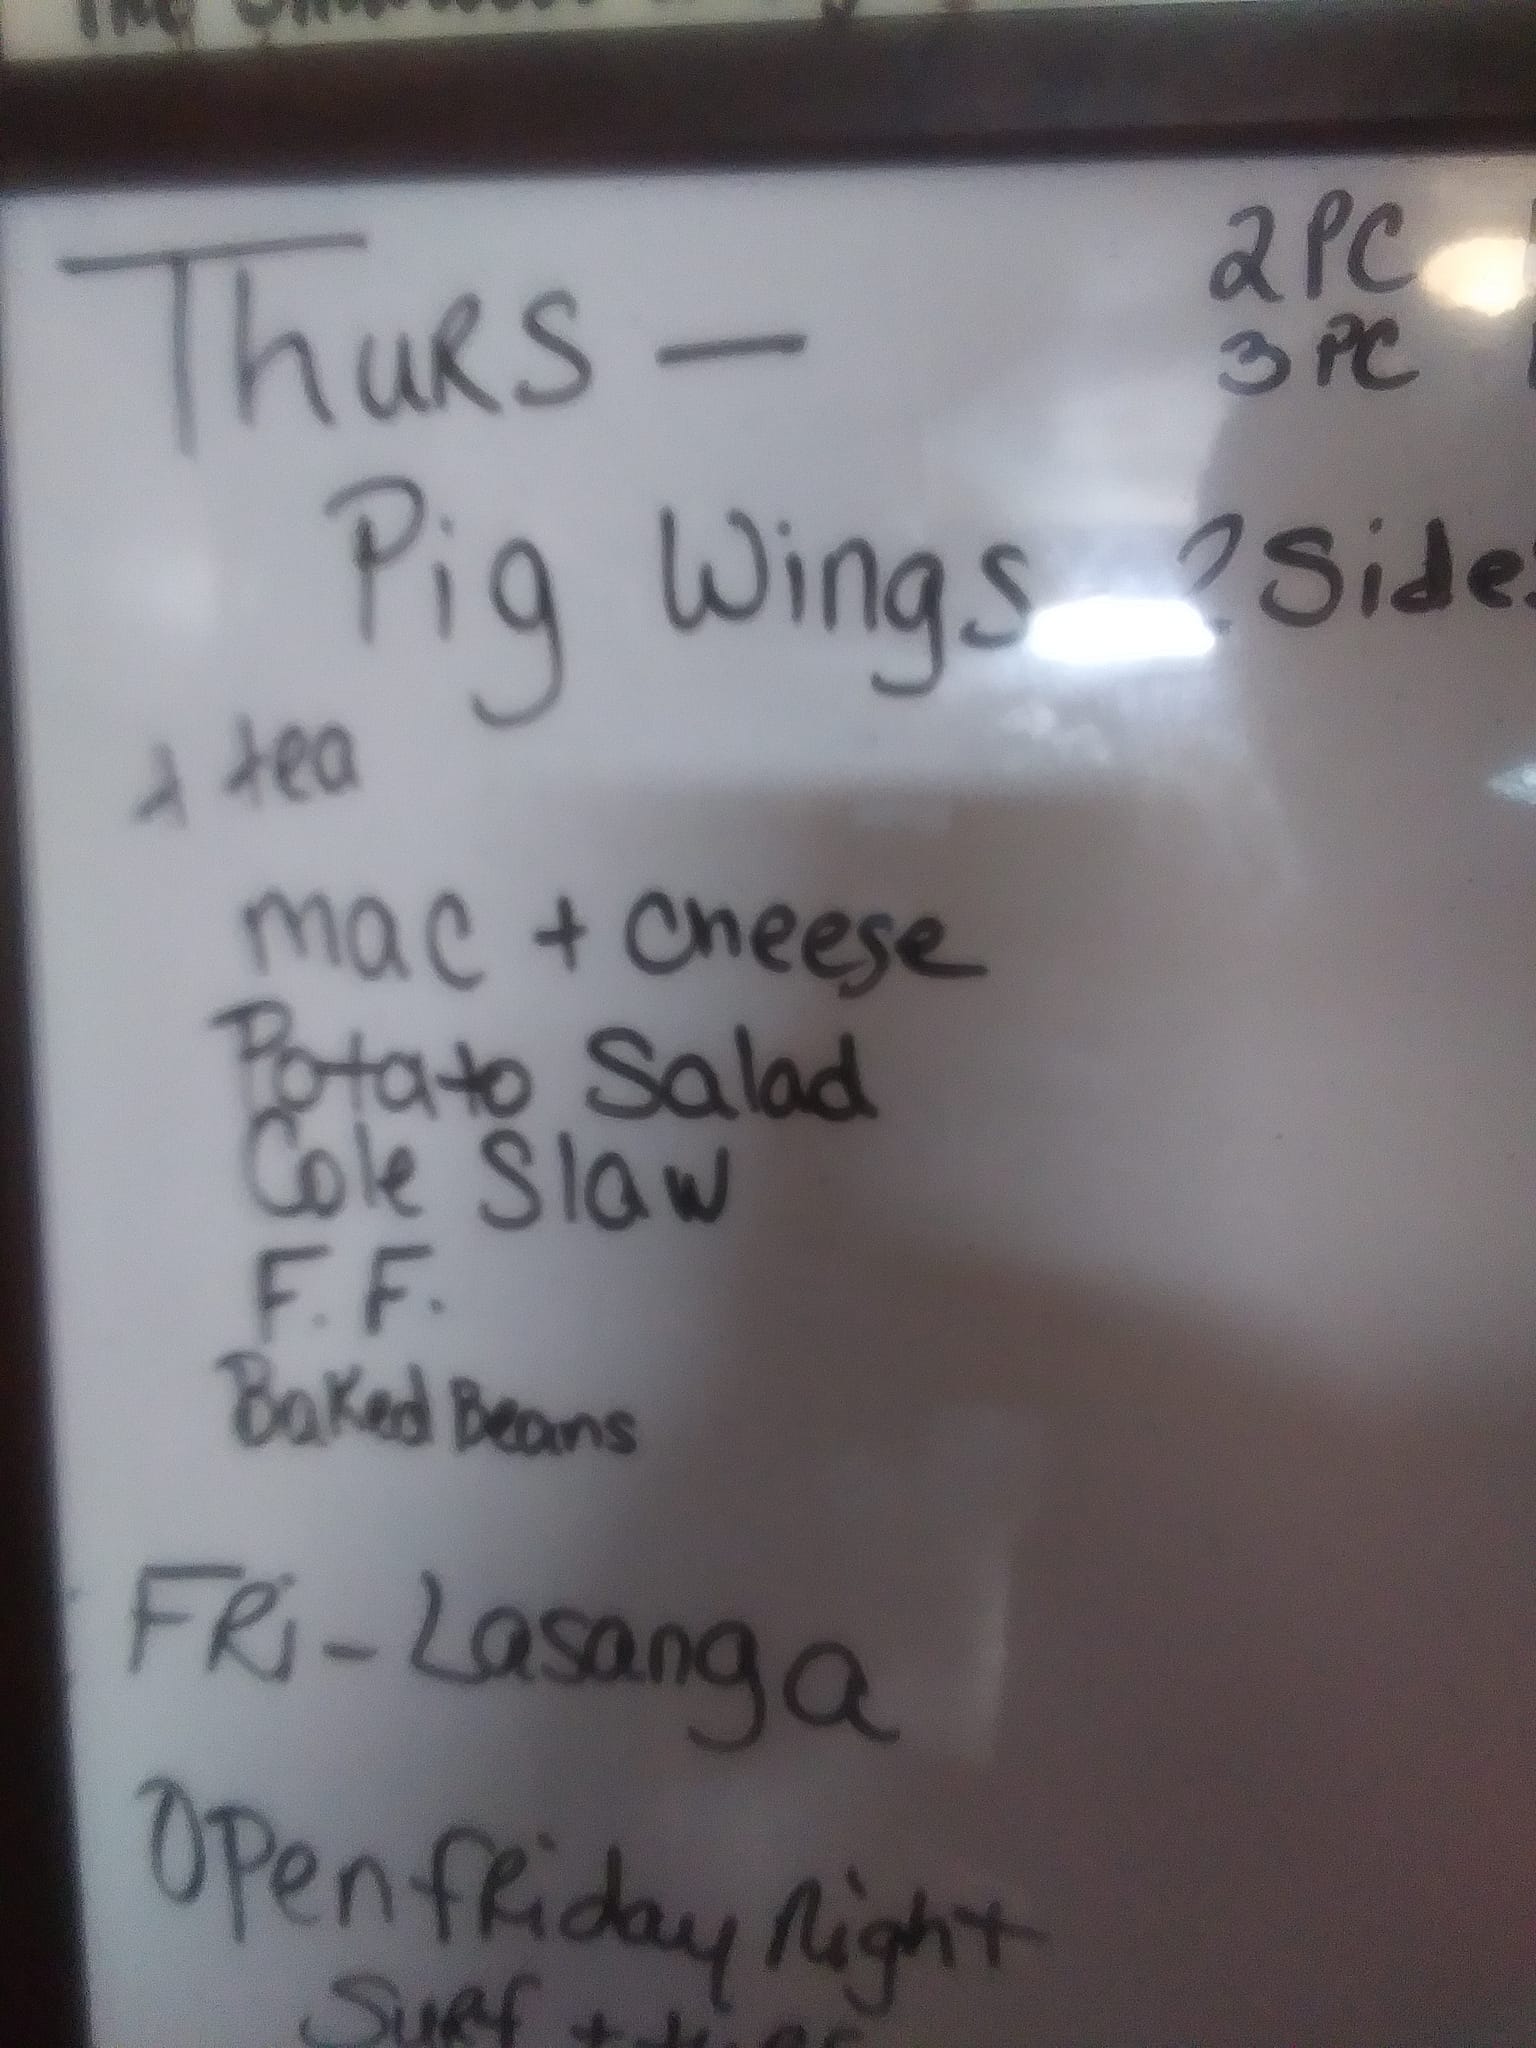 The
Thurs - 2 PC
3 PC
Pig Wings 2 Sides
+ tea
mac + cheese
Potato Salad
Cole Slaw
F. F.
Baked Beans
Fri - Lasanga
Open friday Night
Surf +